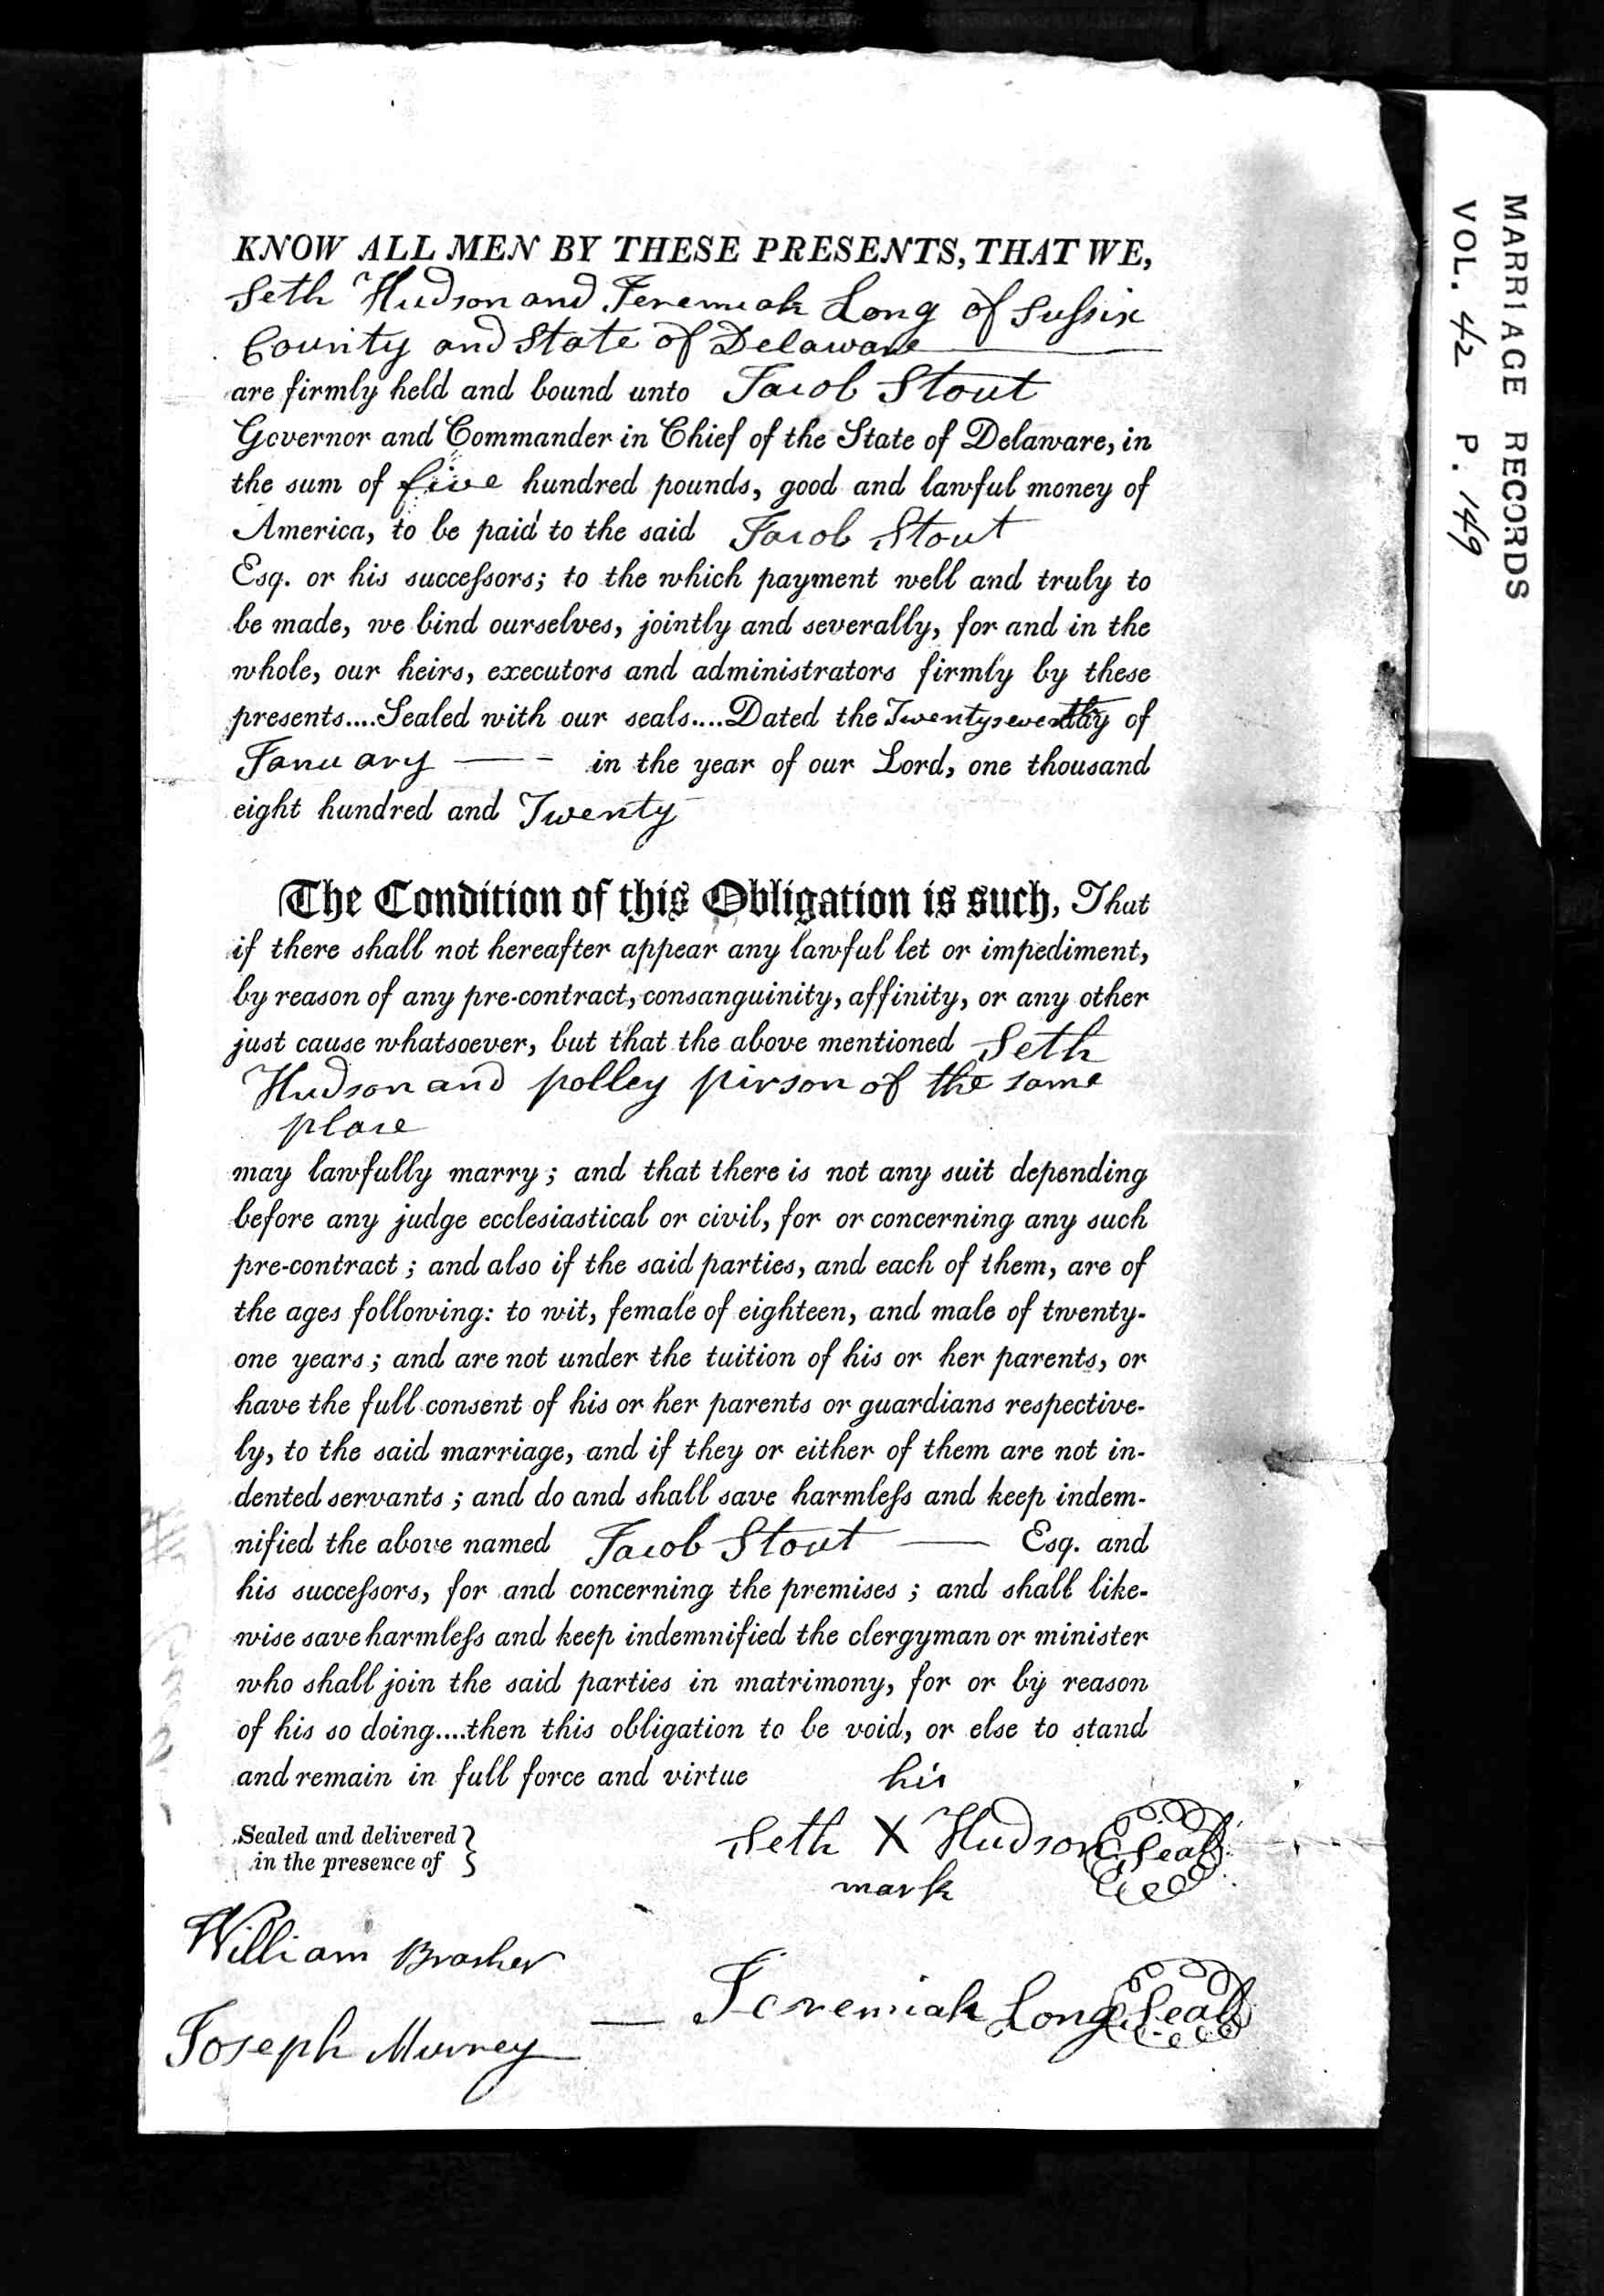 KNOW ALL MEN BY THESE PRESENTS, THAT WE,
Seth Hudson and Jeremiah Long of Sussix
County and State of Delaware
are firmly held and bound unto Jacob Stout
Governor and Commander in Chief of the State of Delaware, in
the sum of five hundred pounds, good and lawful money of
America, to be paid to the said Jacob Stout
Esq. or his successors; to the which payment well and truly to
be made, we bind ourselves, jointly and severally, for and in the
whole, our heirs, executors and administrators firmly by these
presents....Sealed with our seals....Dated the Twentyseventh day of
January — - in the year of our Lord, one thousand
eight hundred and Twenty
The Condition of this Obligation is such, That
if there shall not hereafter appear any lawful let or impediment,
by reason of any pre-contract, consanguinity, affinity, or any other
just cause whatsoever, but that the above mentioned Seth
Hudson and polley pirson of the same
place
may lawfully marry; and that there is not any suit depending
before any judge ecclesiastical or civil, for or concerning any such
pre-contract; and also if the said parties, and each of them, are of
the ages following: to wit, female of eighteen, and male of twenty-
one years; and are not under the tuition of his or her parents, or
have the full consent of his or her parents or guardians respective-
ly, to the said marriage, and if they or either of them are not in-
dented servants; and do and shall save harmless and keep indem-
nified the above named Jacob Stout — Esq. and
his successors, for and concerning the premises; and shall like-
wise save harmless and keep indemnified the clergyman or minister
who shall join the said parties in matrimony, for or by reason
of his so doing....then this obligation to be void, or else to stand
and remain in full force and virtue
his
Sealed and delivered
in the presence of
Seth X Hudson Seal
mark
William Brasher
Jeremiah Long Seal
Joseph Murrey
MARRIAGE RECORDS
VOL. 42 P. 149